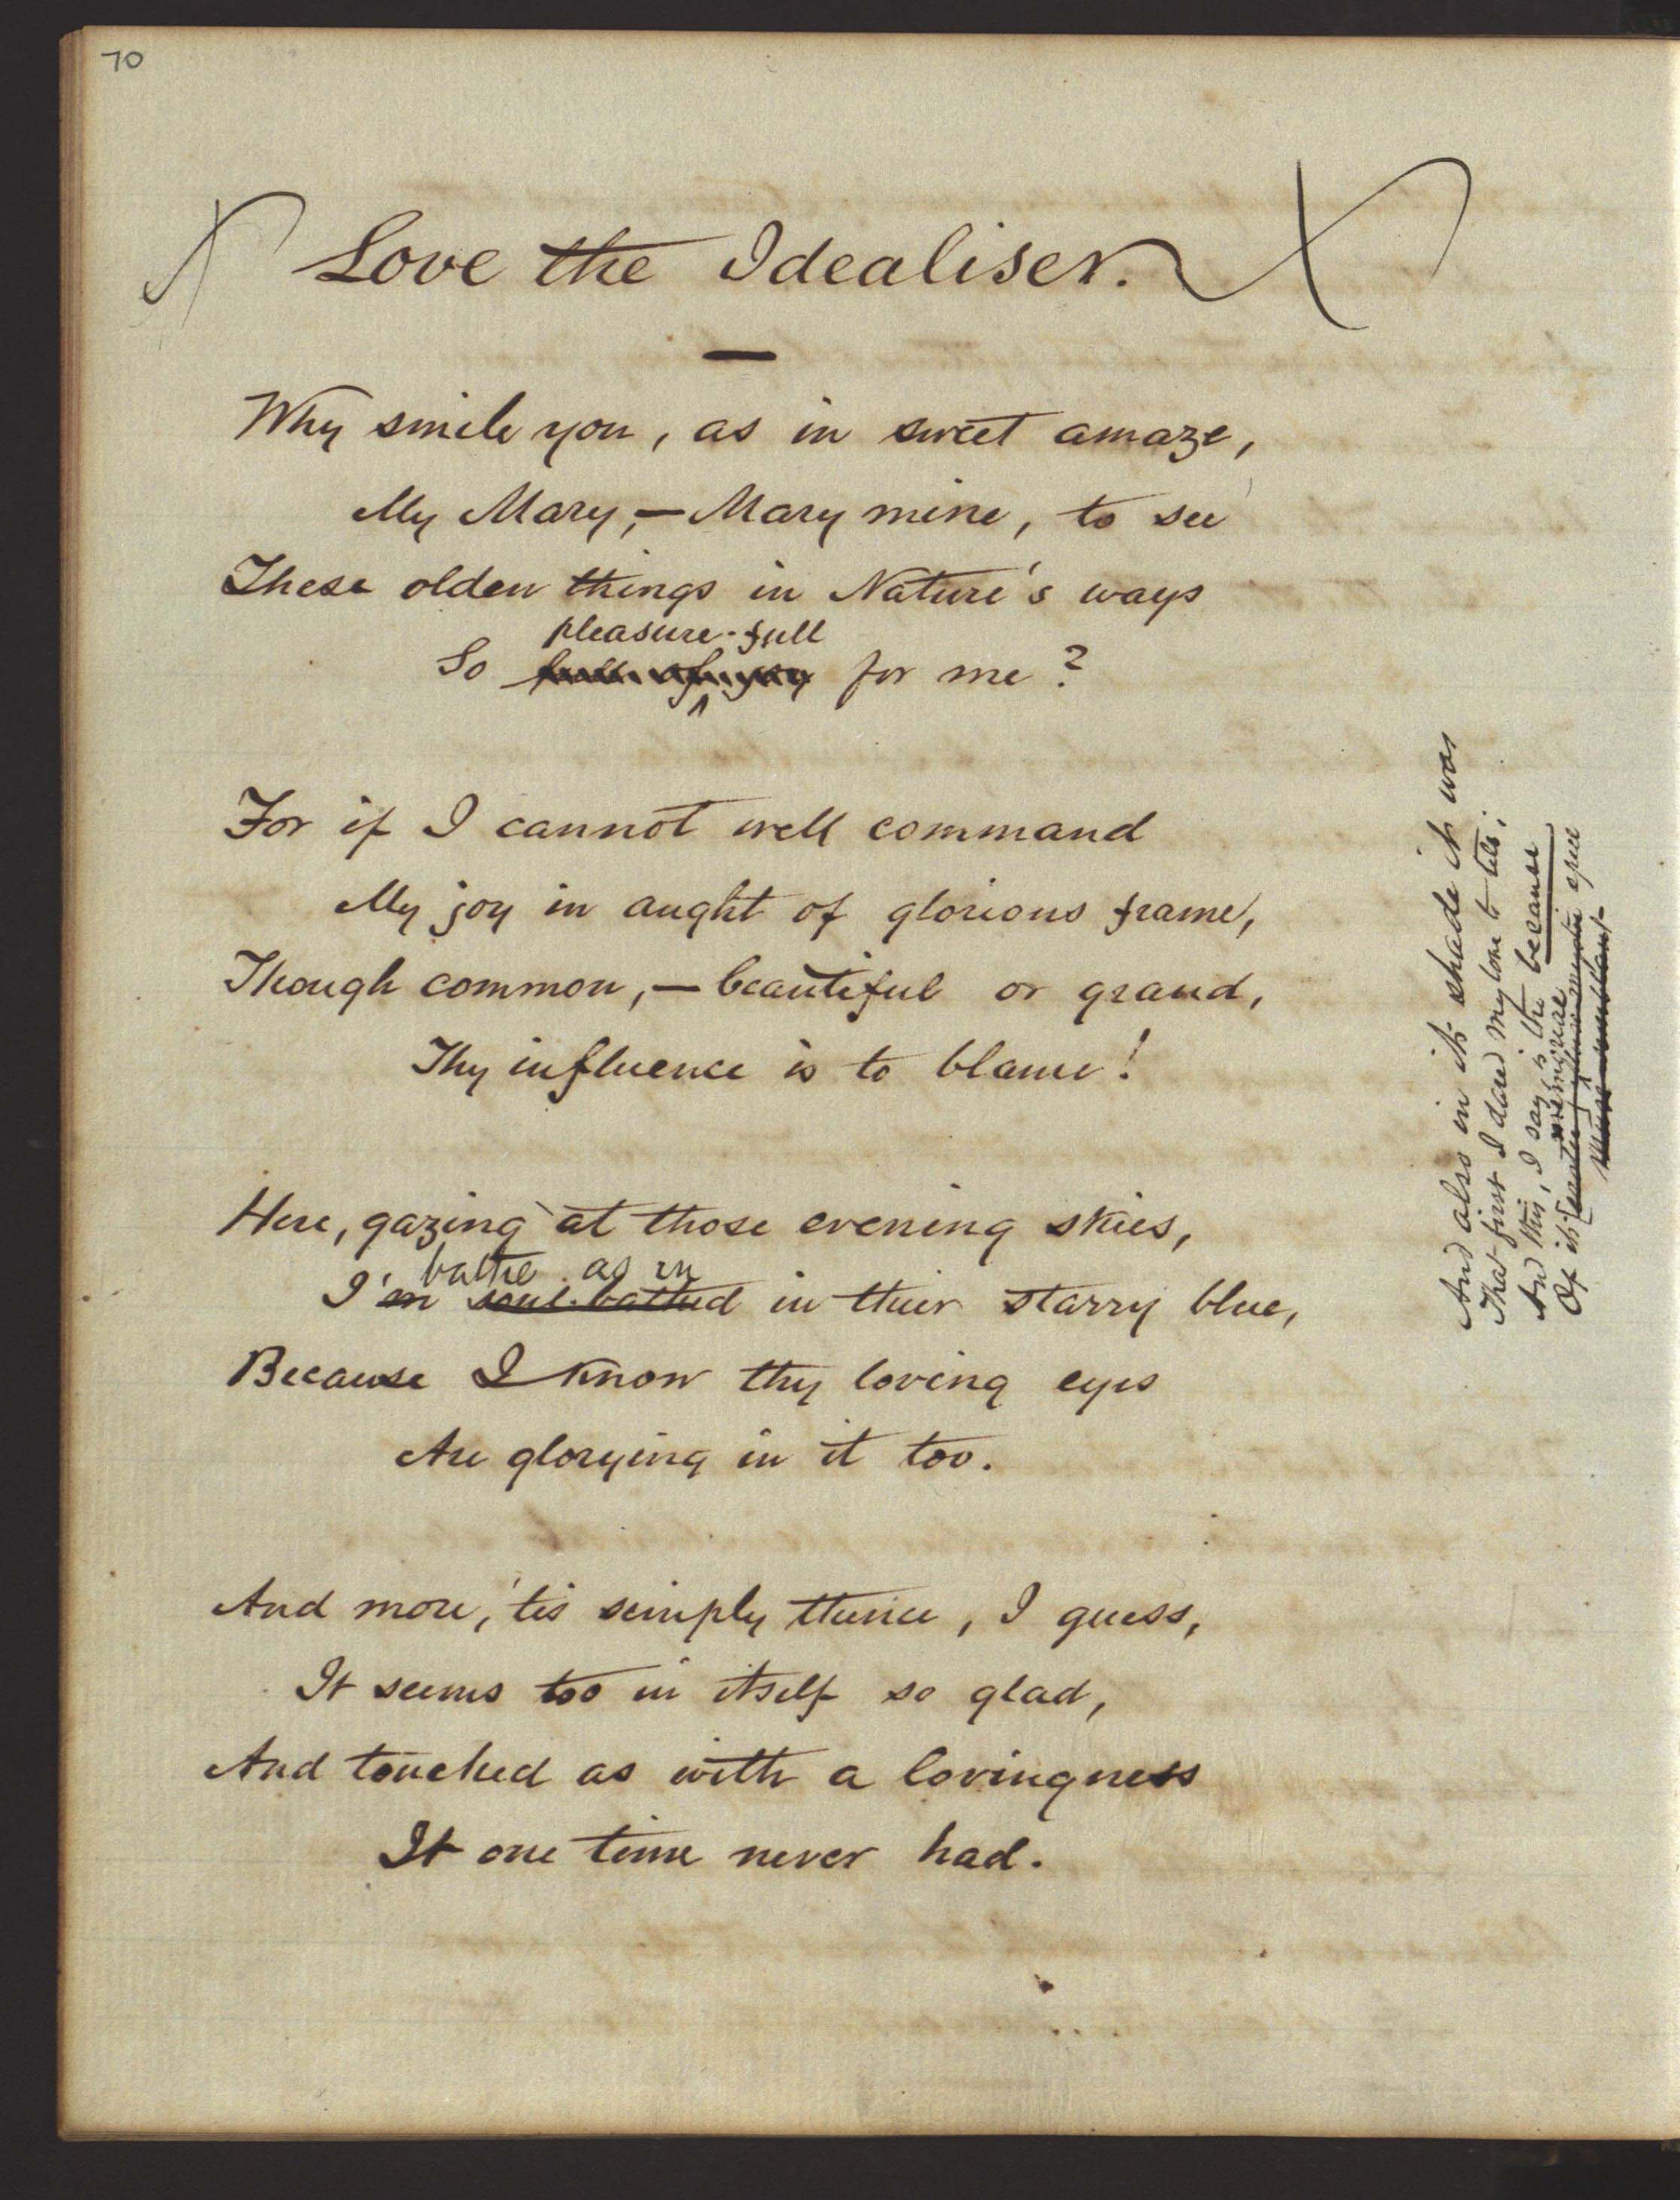 70
Love the Idealiser.
Why smile you, as in sweet amaze,
My Mary,—Mary mine, to see
These olden things in Nature's ways
pleasure-full
So full of joy for me?
For if I cannot well command
My joy in aught of glorious frame,
Though common,—beautiful or grand,
Thy influence is to blame!
Here, gazing at those evening skies,
bathe as in
I'm soul-bathed in their starry blue,
Because I know thy loving eyes
Are glorying in it too.
And more, 'tis simply thence, I guess,
It seems too in itself so glad,
And touched as with a lovingness
It one time never had.
And also in its shade it was
That first I dared my love to tell;
And this, I say is the because
Of its